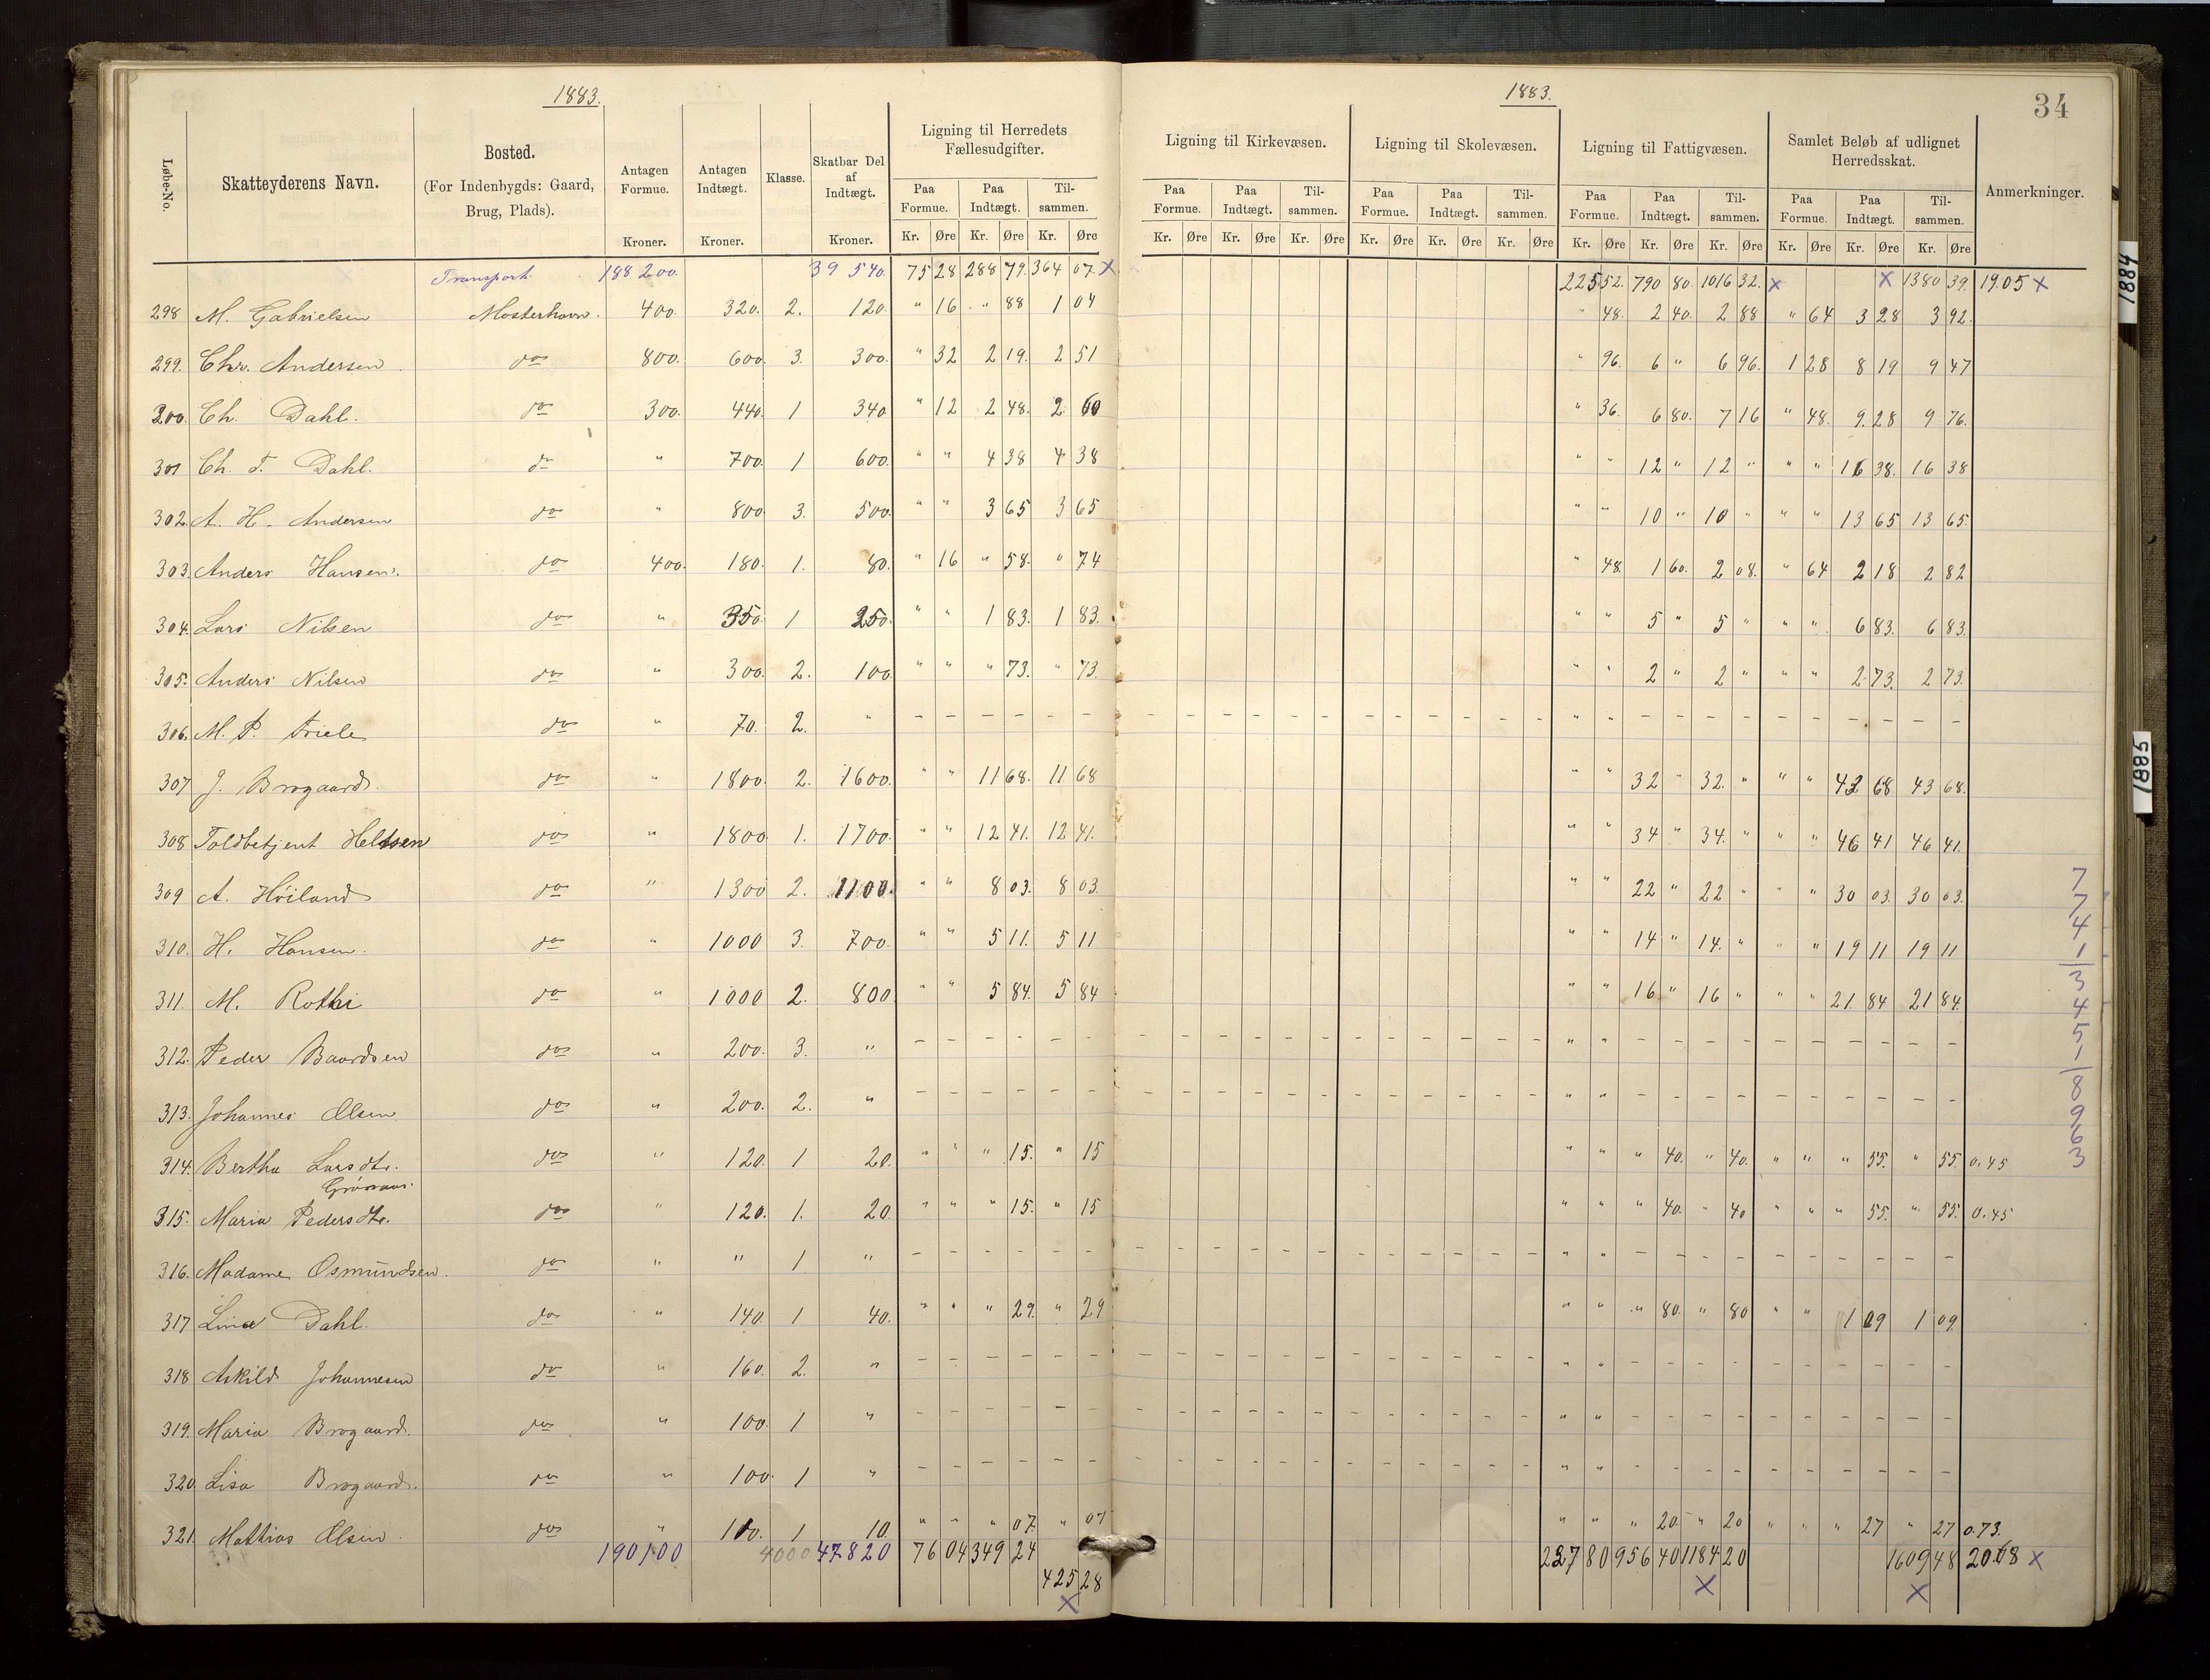 1883. 1883. 34
Løbe-No. Skatteyderens Navn. Bosted. (For Indenbygds: Gaard, Brug, Plads). Antagen Formue. Kroner. Antagen Indtægt. Kroner. Klasse. Skatbar Del af Indtægt. Kroner. Ligning til Herredets Fællesudgifter. Ligning til Kirkevæsen. Ligning til Skolevæsen. Ligning til Fattigvæsen. Samlet Beløb af udlignet Herredsskat. Anmerkninger.
Paa Formue. Paa Indtægt. Til-sammen. Paa Formue. Paa Indtægt. Til-sammen. Paa Formue. Paa Indtægt. Til-sammen. Paa Formue. Paa Indtægt. Til-sammen. Paa Formue. Paa Indtægt. Til-sammen.
Kr. Øre Kr. Øre Kr. Øre Kr. Øre Kr. Øre Kr. Øre Kr. Øre Kr. Øre Kr. Øre Kr. Øre Kr. Øre Kr. Øre Kr. Øre Kr. Øre Kr. Øre
Transport 188 200. 39 540. 75 28 288 79. 364 07 x 225 52. 790 80. 1016 32. x x 1380 39. 19.05 x
298 M. Gabrielsen Mosterhavn. 400. 320. 2. 120. " 16 " 88 1 04 " 48. 2 40. 2 88 " 64 3 28 3 92.
299. Chr. Andersen do 800. 600. 3. 300. " 32 2 19. 2 51 " 96. 6 " 6 96. 1 28 8 19 9 47
300. Ch. Dahl. do 300. 440. 1 340. " 12 2 48. 2 60 " 36. 6 80. 7 16 " 48. 9.28 9 76.
301 Ch. T. Dahl. do " 700. 1 600. " " 4 38 4 38 " " 12 " 12 " " " 16 38. 16 38
302. A. H. Andersen do " 800 3. 500. " " 3 65 3 65 " " 10 " 10 " " " 13 65 13 65.
303. Anders Hansen. do 400. 180. 1. 80. " 16 " 58. " 74 " 48. 1 60. 2 08. " 64 2 18 2 82
304. Lars Nilsen do " 350. 1 250. " " 1 83. 1 83. " " 5 " 5 " " " 6 83. 6 83.
305. Anders Nilsen do " 300. 2. 100. " " " 73. " 73. " " 2 " 2 " " " 2 73. 2 73.
306. M. P. Friele do " 70. 2. " – – – – – – – – – – – – – – – – – – " " – – – – – – – – – –
307 J. Brogaard. do " 1800. 2. 1600. " " 11 68. 11 68 " " 32 " 32. " " " 43 68 43 68.
308 Toldbetjent Heltsen do " 1800. 1. 1700. " " 12 41. 12 41. " " 34 " 34. " " " 46 41 46 41.
309 A. Høiland do " 1300 2. 1100. " " 8 03. 8 03. " " 22 " 22 " " " 30 03. 30 03.
310. H. Hansen. do " 1000 3. 700. " " 5 11. 5 11 " " 14 " 14. " " " 19 11 19 11
311. M. Rothi do " 1000 2. 800 " " 5 84. 5 84 " " 16 " 16 " " " 21. 84 21 84.
312. Peder Baardsen do " 200. 3. " – – – – – – – – – – – – – – – – – – " " – – – – – – – – – –
313. Johannes Olsen do " 200. 2. " – – – – – – – – – – – – – – – – – – " " – – – – – – – – – –
314. Bertha Larsdtr. do " 120. 1 20. " " " 15. " 15 " " " 40. " 40. " " " 55. " 55. 0.45
315. Maria Pedersdtr. do " 120. 1. 20. " " " 15. " 15 " " " 40. " 40 " " " 55. " 55.0.45
316.Ame Osmundsen. do " " 1 " – – – – – – – – – – – – – – – – – – " " – – – – – – – – – –
317 Lina Dahl. do " 140. 1 40. " " " 29. " 29 " " " 80. " 80 " " 1 09 1 09.
318 Askild Johannesen do " 160. 2. " – – – – – – – – – – – – – – – – – – " " – – – – – – – – – –
319. Maria Brogaard. do " 100. 1 " – – – – – – – – – – – – – – – – – – " " – – – – – – – – – –
320. Lisa Brogaard. do " 100. 1 " – – – – – – – – – – – – – – – – – – " " – – – – – – – – – –
321. Mathias Olsen do " 110. 1 10. " " " 07. " 07 " " " 20. " 20 " " " 27 " 27 0.73.
190100 4000 47820 76 04 349 24 227 80 956 40 1184 20 1609 48 20.68 x
425 28 x x
x
7
7
4
1
3
4
5
1
8
9
6
3
1884
1885